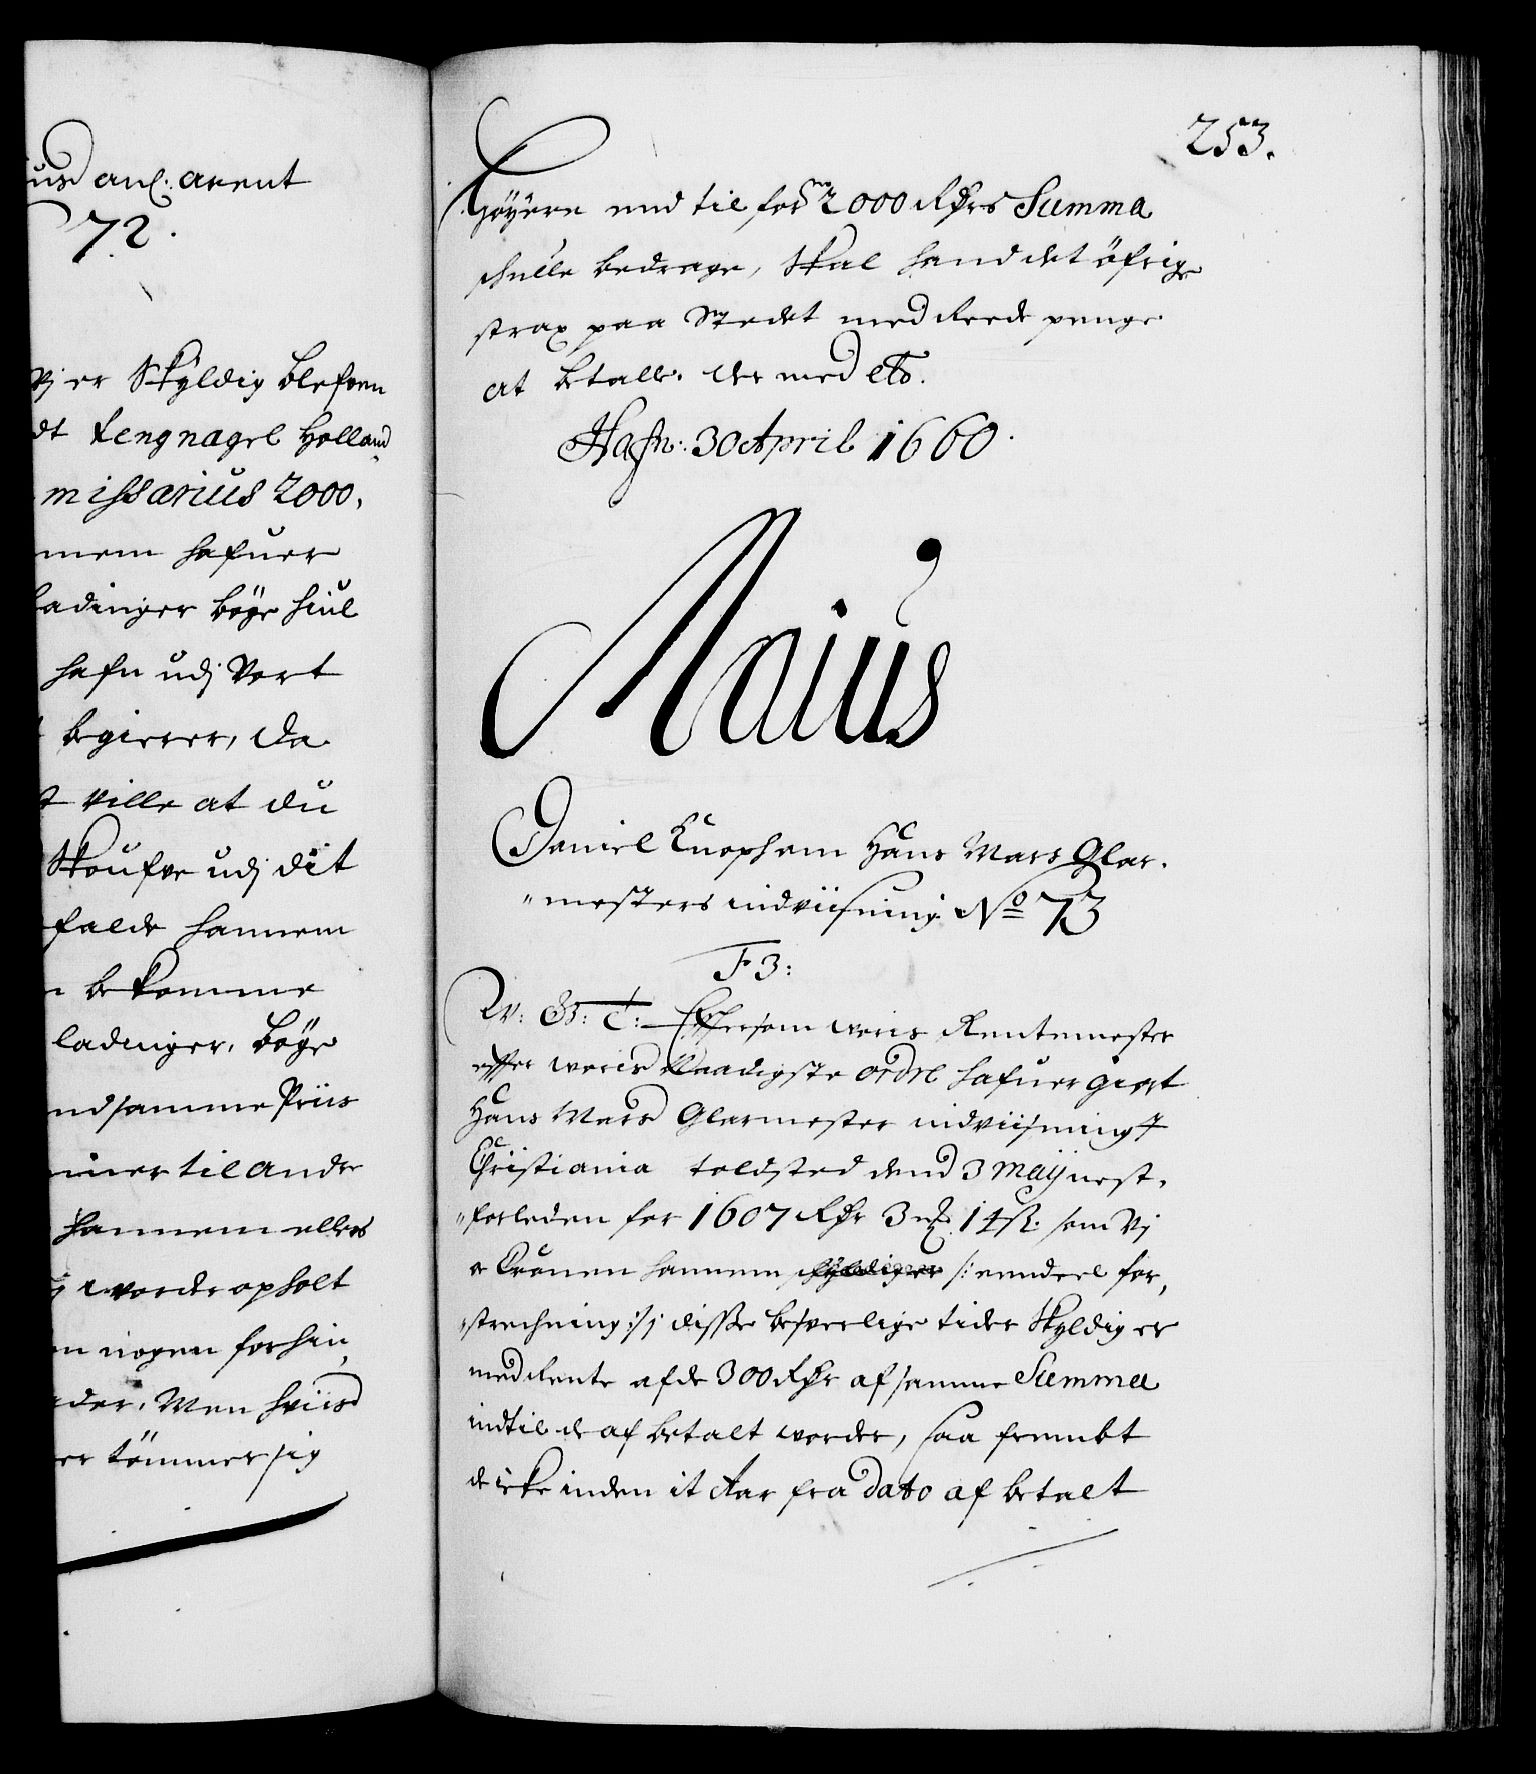 usd anl: arent
72.
vj er Skyldig blefven
dt Lengnagel Holland
missarius 2000.
mem hafuer
ladinger bøge hiul
hafn udj Vort
begierer, da
ville at du
Skoufve udj dit
falde hannem
bekomme
ladinger, bøge
ndsamme Priis
mer til ande
hannem ellers
worde opholt
nogen forhin
der, Men hviis
er tömmer sig
253.
Høyere end til for.ne 2000 Rdrs Summa
schulle bedrage, Skal hand det öfrige
strax paa Stedet med Reede penge
at betalle. der med etc.
Hafn: 30 April 1660.
Maius
Daniel Knopham Hans Mars Glar-
"mesters indviisning No 73
F 3:
V: G: T: Eftersom woris Rentemester
effter woris Naadigste ordre hafuer giort
Hans Mars Glarmester indviisning p
Christiania toldsted dend 3 Maij nest-
"forleden for 1607 Rdr 3 mk 14 ß. som Vj
e Cronen hannem schyldig er /: eendeel for-
"strechning :/ j disse besverlige tider Skyldig er
med Rente af de 300 Rdr af samme Summa
indtil de af betalt worder, saa frembt
de icke inden it Aar fra dato af betalt